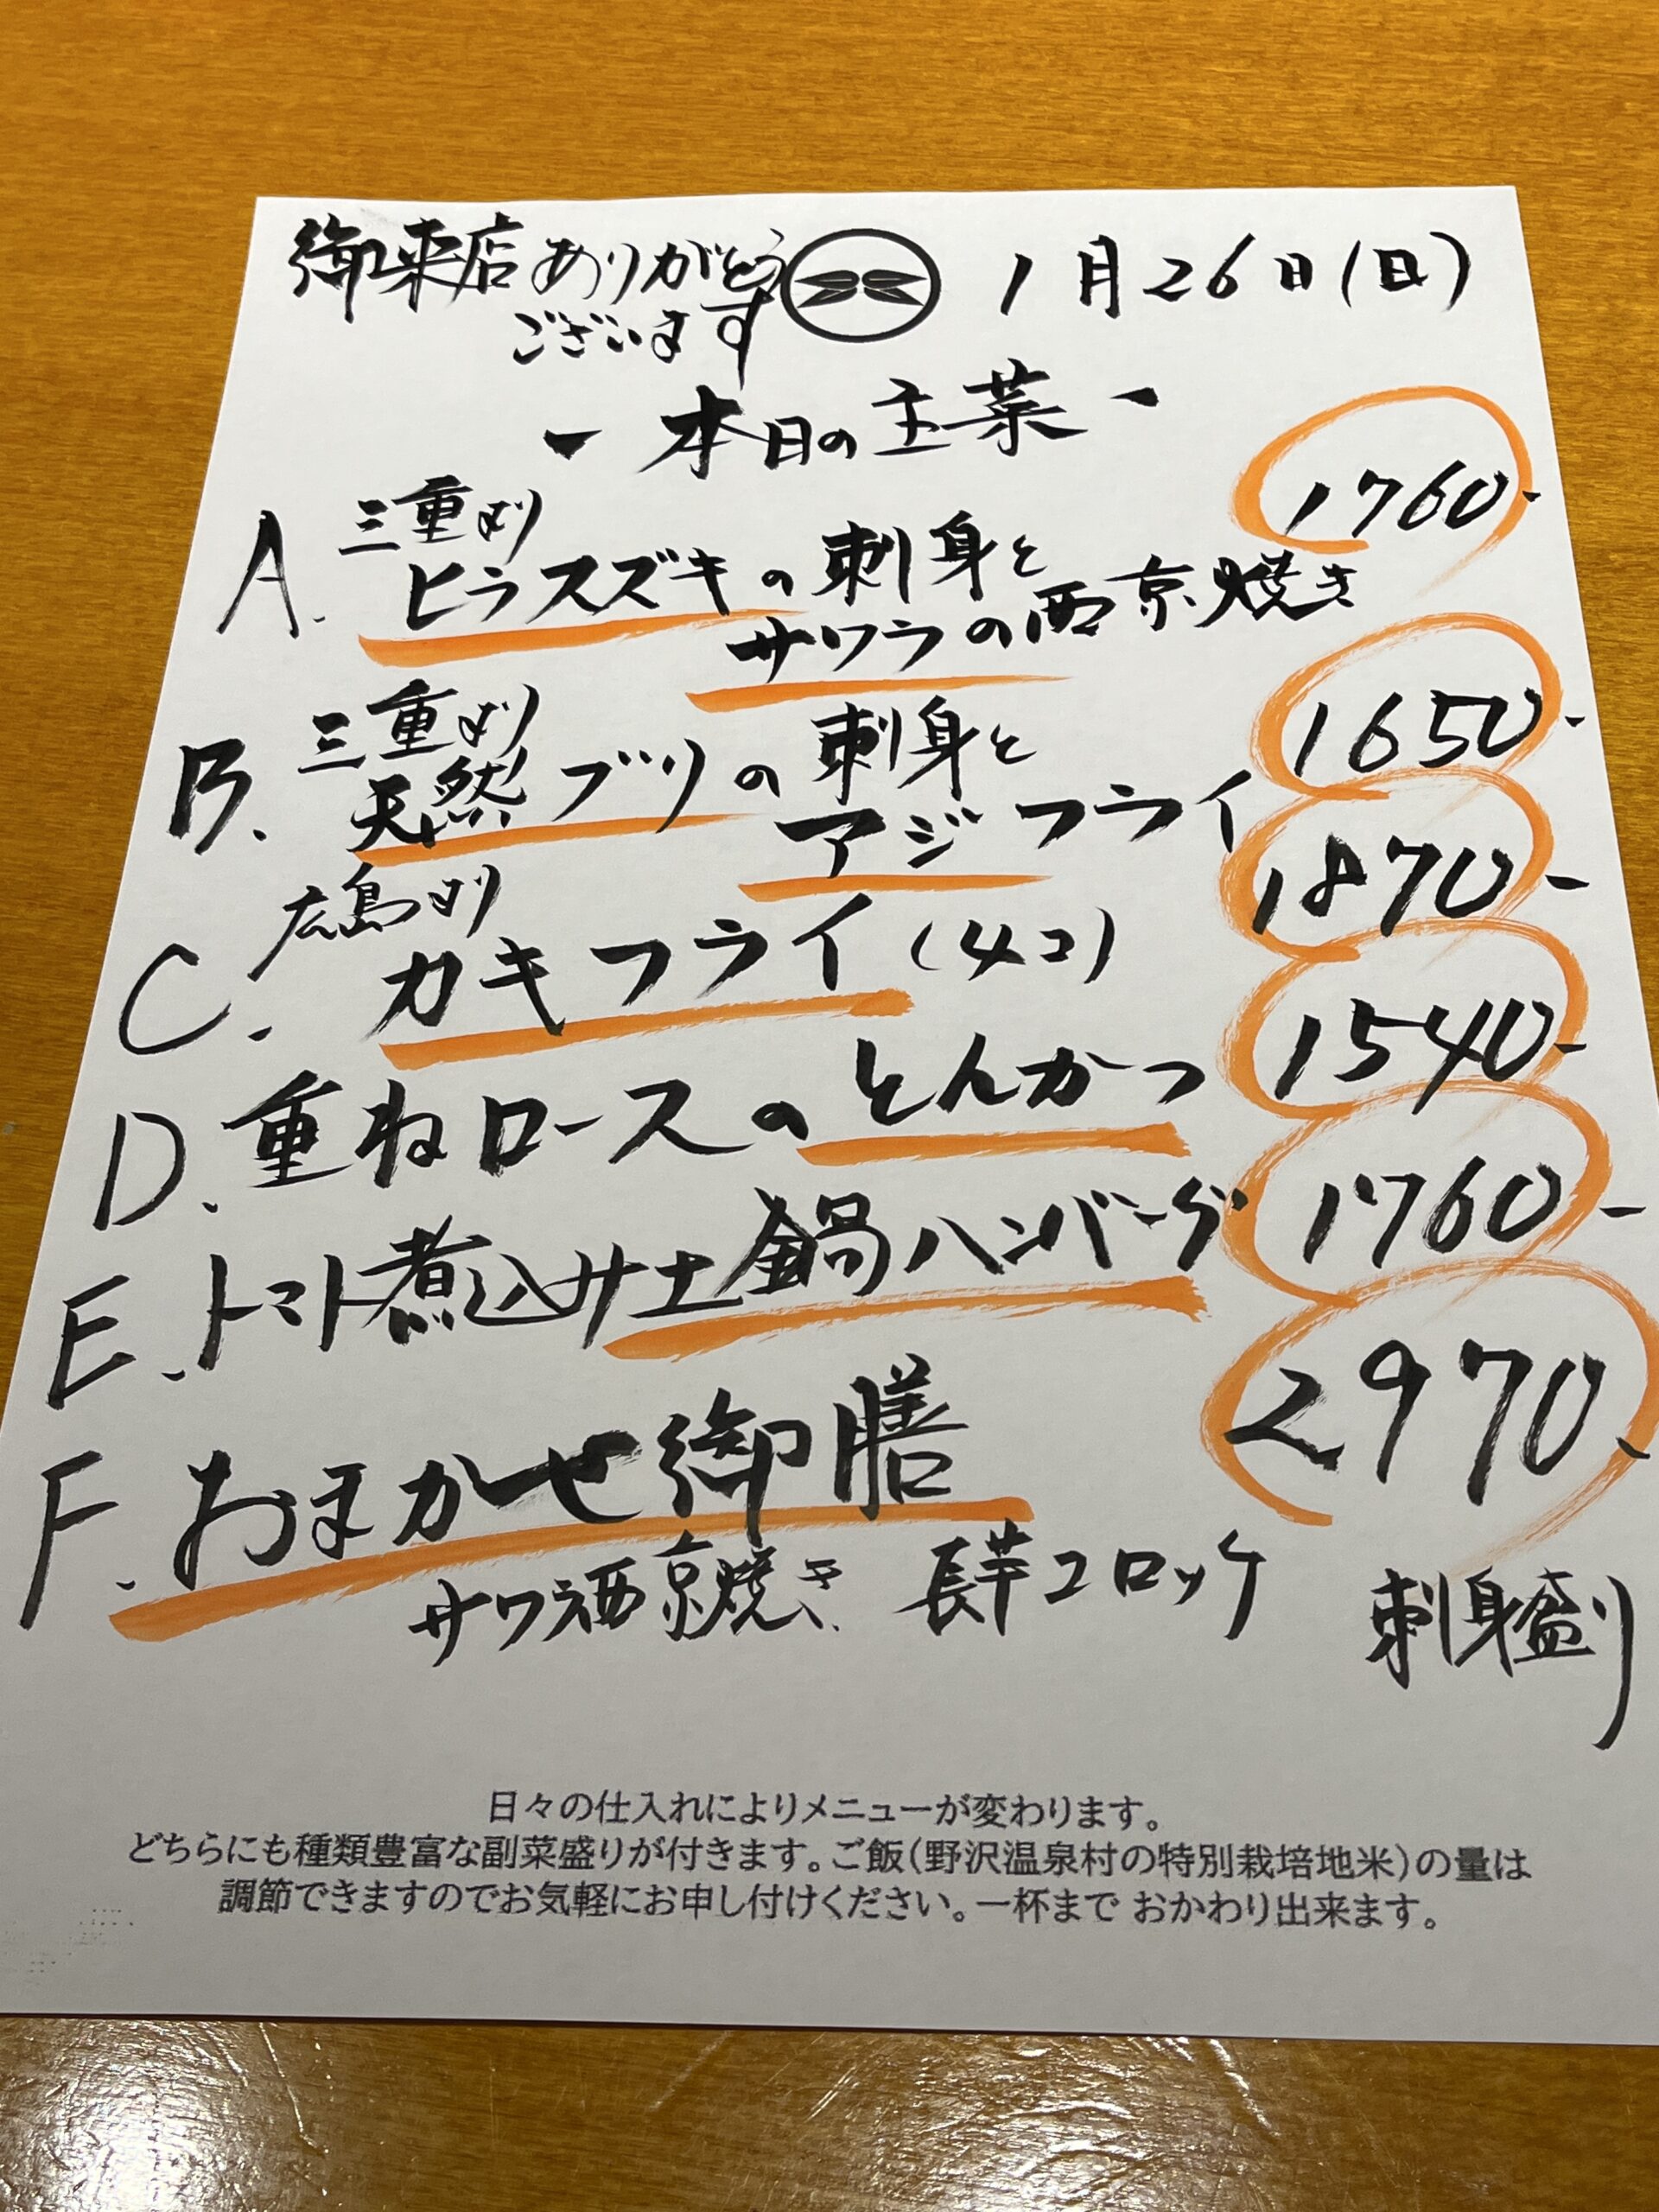 御来店ありがとう
ございます
1月26日(日)
- 本日の主菜 -
A. 三重より
ヒラスズキの刺身と
サワラの西京焼き
1760-
B. 三重より
天然ブリの刺身と
アジフライ
1650-
C. 広島より
カキフライ(4コ)
1870-
D. 重ねロースのとんかつ
1540-
E. トマト煮込み土鍋ハンバーグ
1760-
F. おまかせ御膳
2970-
サワラ西京焼き 長芋コロッケ 刺身盛り
日々の仕入れによりメニューが変わります。
どちらにも種類豊富な副菜盛りが付きます。ご飯(野沢温泉村の特別栽培地米)の量は
調節できますのでお気軽にお申し付けください。一杯まで おかわり出来ます。